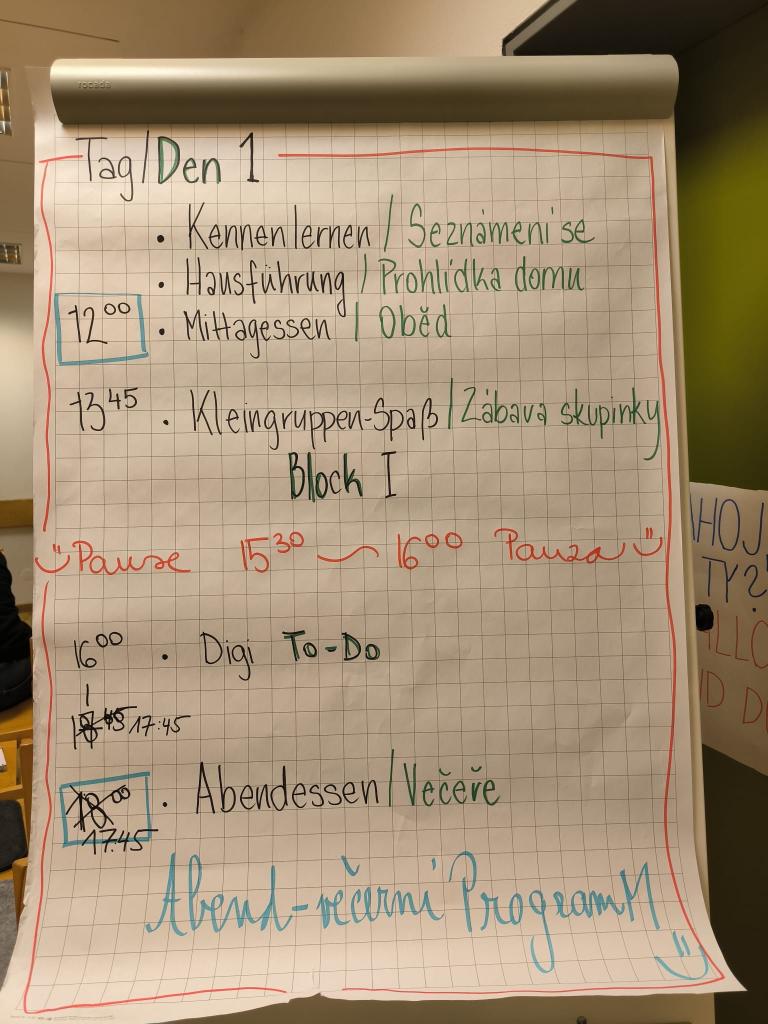 rocada
Tag/Den 1
• Kennenlernen / Seznámení se
• Hausführung / Prohlídka domu
12⁰⁰ • Mittagessen / Oběd
13⁴⁵ • Kleingruppen-Spaß / Zábava skupinky
Block I
Pause 15³⁰ ~ 16⁰⁰ Pauza
16⁰⁰ • Digi To-Do
17:45
18⁰⁰ • Abendessen / Večeře
17:45
Abend-večerní ProgramM
AHOJ
TY?